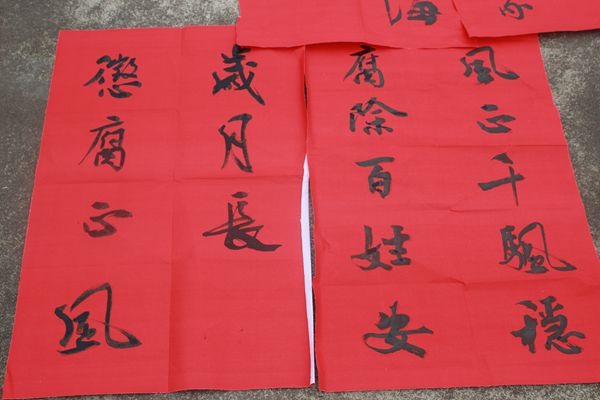 海
風正千颿穩
腐除百姓安
歲月長
懲腐正風